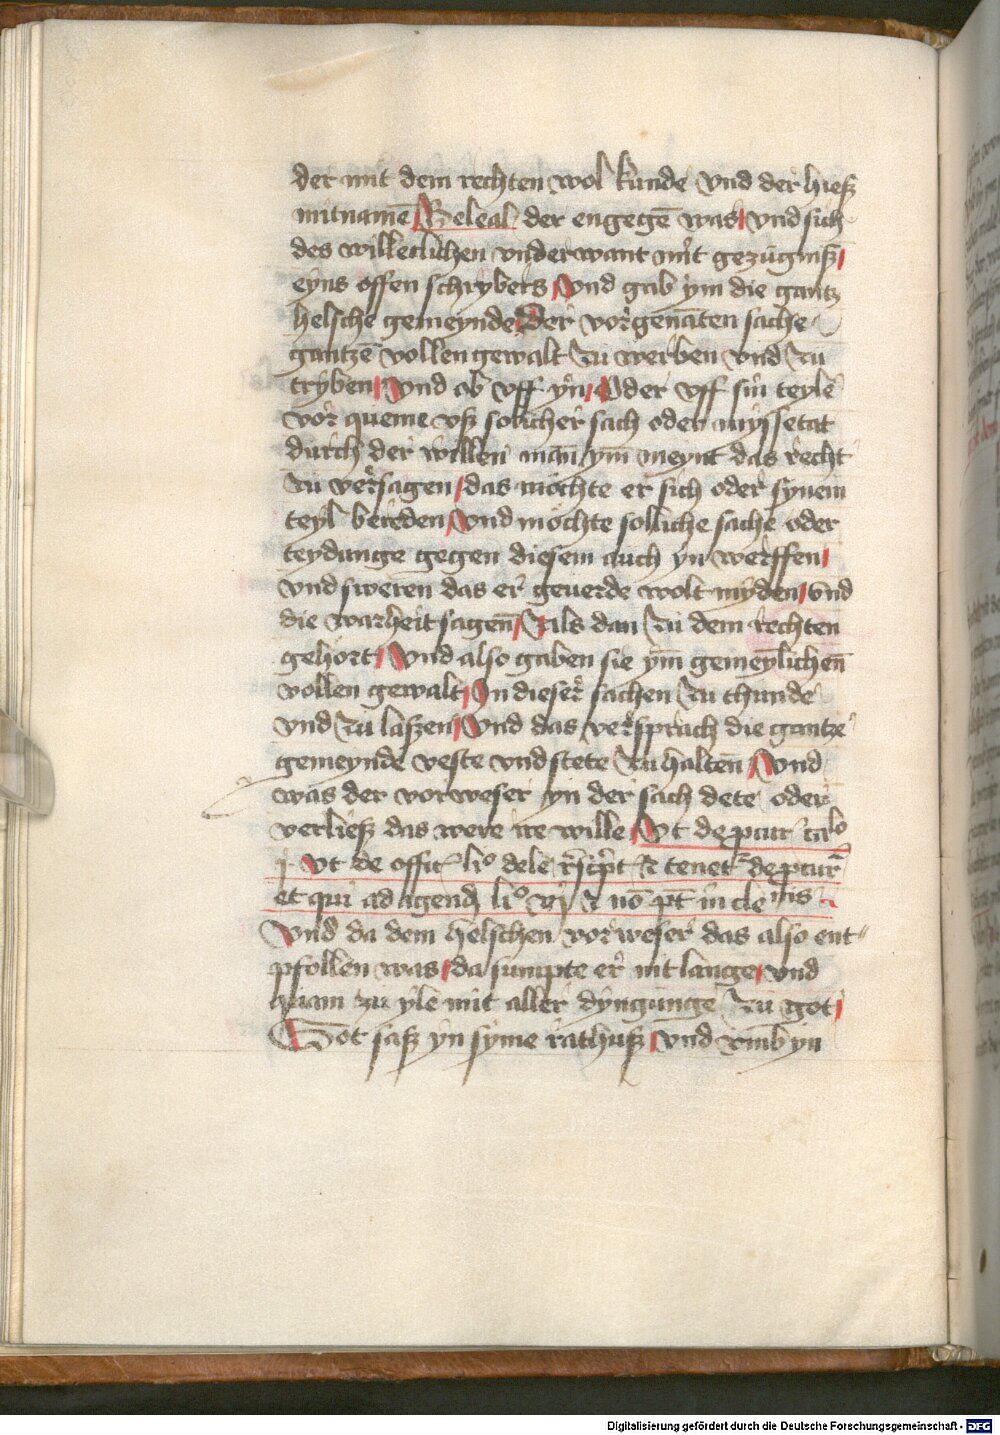 der mit dem rechten wol kunde vnd der hieß
mitname̅ Beleal der engege̅ was vnd sich
des willeclichen vnderwant mit gezúgniß
eyns offen schrybers Vnd gab ym die gantz
helsche gemeynde Der vorgena̅ten sache
gantze̅ vollen gewalt zu werben vnd zu
tryben Vnd ob vff yn Oder vff sin teyle
vor queme vß solicher sach oder myssetat
durch der willen man ym meynt das recht
zu versagen das mochte er sich oder synem
teyl bereden Vnd mochte solliche sache oder
teydunge gegen diesem auch yn werffen
vnd sweren das er geuerde wolt myden vnd
die warheit sagen Als dan zu dem rechten
gehort Vnd also gaben sie ym gemeylichen
vollen gewalt In dieser sachen zu thunde
vnd zu laszen Vnd das versprach die gantze
gemeynde veste vnd stete zu halten Vnd
was der vorweser yn der sach dete oder
verließ das were ire wille Vt de
Vt de offic̅ li° dele & tenet
et qui ad agend li° & no̅ in cle
Vnd da dem helschen vorweser das also ent-
pfollen was da sumpte er nit lange vnd
quam zu yle mit aller dyngunge zu got
Got saß yn syme rathuß vnd vmb yn
Digitalisierung gefördert durch die Deutsche Forschungsgemeinschaft - DFG